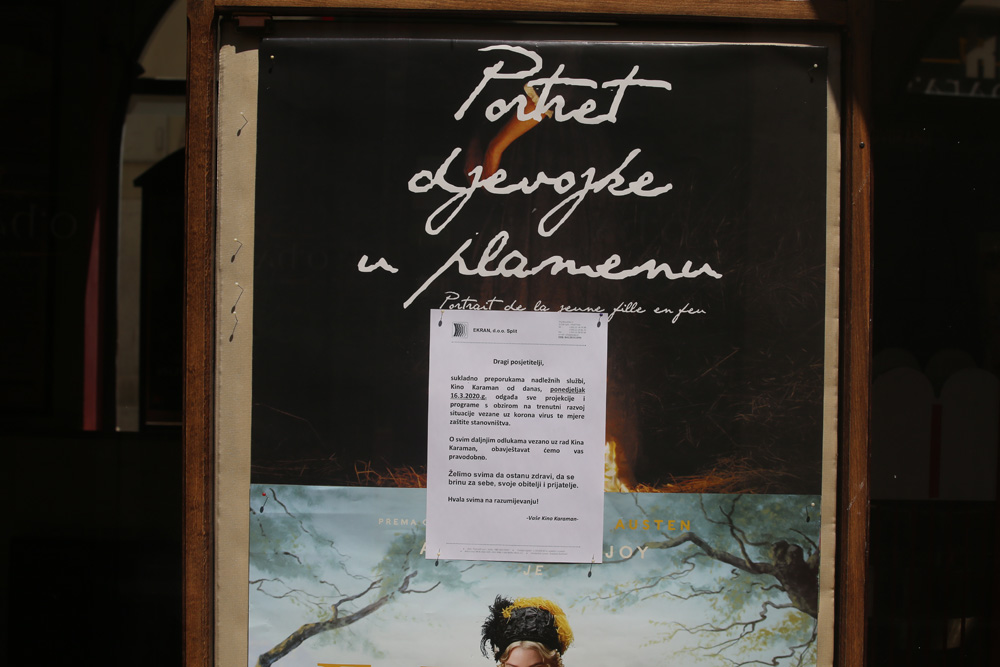 Portret
djevojke
u plamenu
Portrait de la jeune fille en feu
EKRAN, d.o.o. Split
Dragi posjetitelji,
sukladno preporukama nadležnih službi,
Kino Karaman od danas, ponedjeljak
16.3.2020.g. odgađa sve projekcije i
programe s obzirom na trenutni razvoj
situacije vezane uz korona virus te mjere
zaštite stanovništva.
O svim daljnjim odlukama vezano uz rad Kina
Karaman, obavještavat ćemo vas
pravodobno.
Želimo svima da ostanu zdravi, da se
brinu za sebe, svoje obitelji i prijatelje.
Hvala svima na razumijevanju!
-Vaše Kino Karaman-
PREMA AUSTEN
JOY
JE